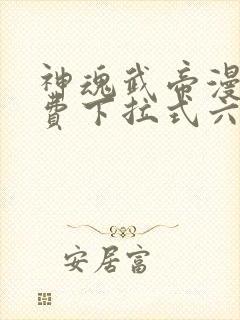 神魂武帝漫
費下拉式六
安居富